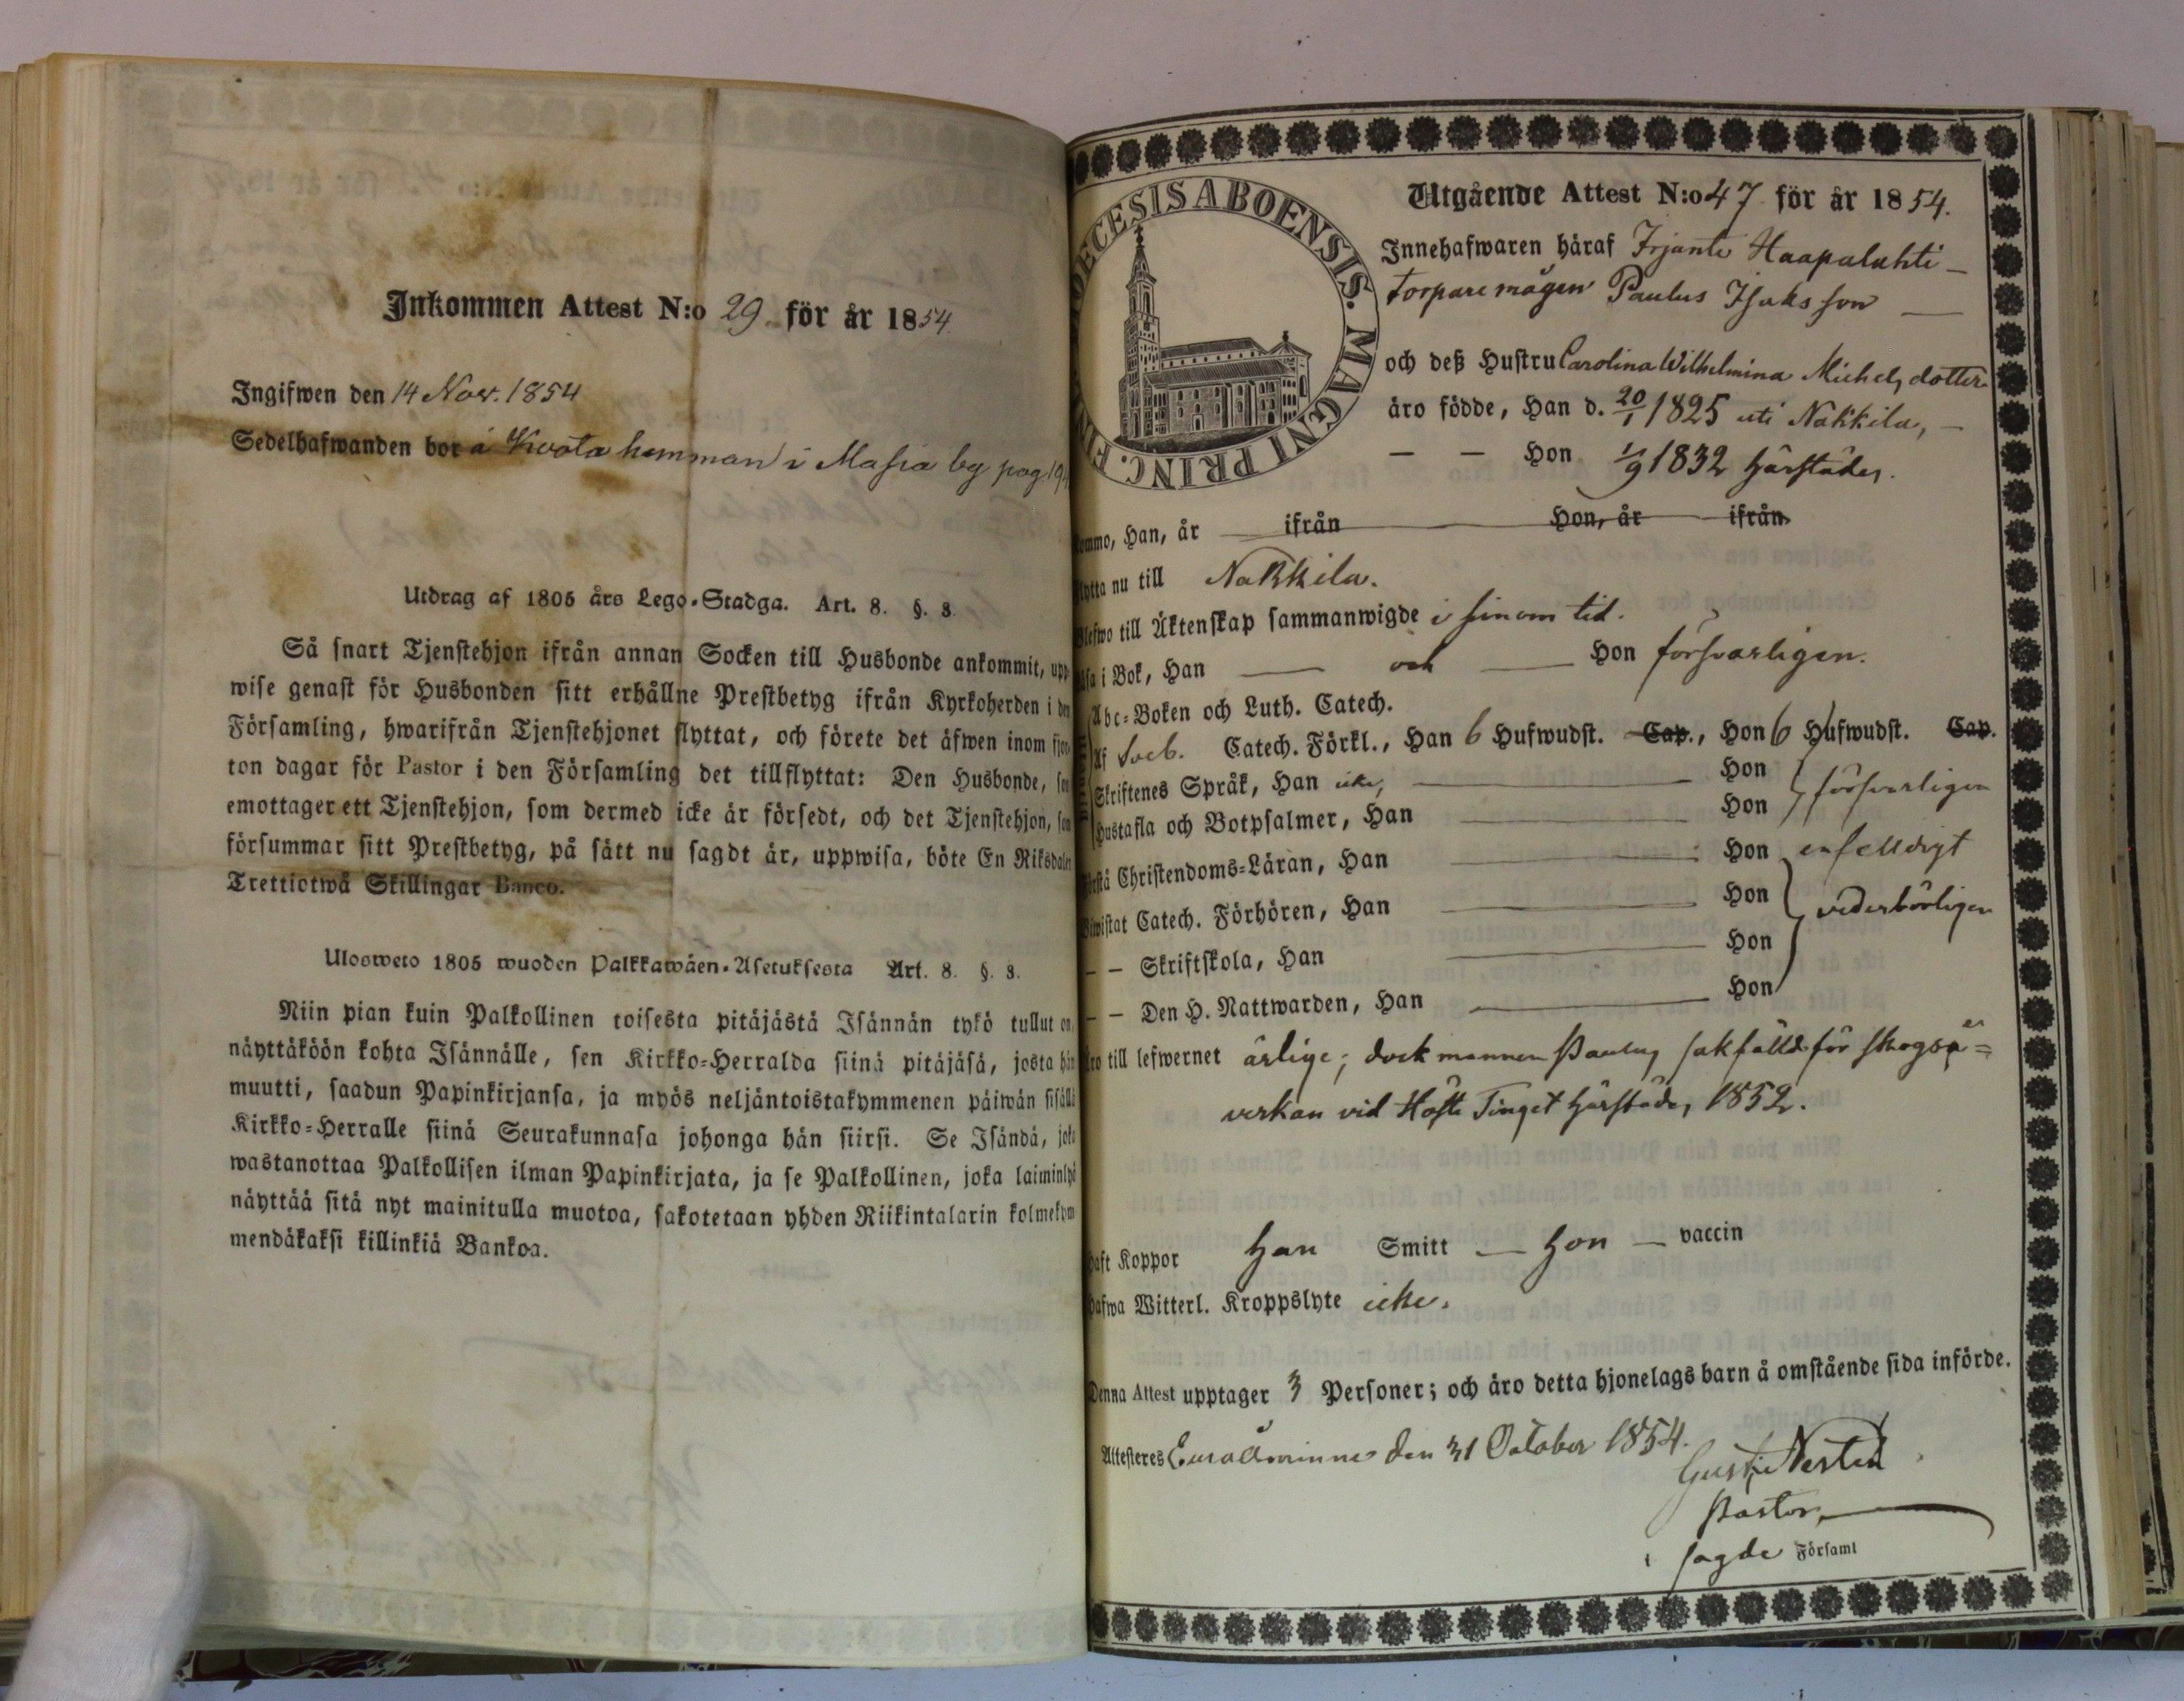 Inkommen Attest N:o 29 för år 1854
Ingifwen den 14 Nov. 1854
Sedelhafwanden bor å Kvota hemman i Masia by pag 19
Utdrag af 1805 års Lego-Stadga. Art. 8. §. 8.
Så snart Tjenstehjon ifrån annan Socken till Husbonde ankommit, upp
wise genast för Husbonden sitt erhållne Prestbetyg ifrån Kyrkoherden i den
Församling, hwarifrån Tjenstehjonet flyttat, och förete det äfwen inom fjor
ton dagar för Pastor i den Församling det tillflyttat: Den Husbonde, som
emottager ett Tjenstehjon, som dermed icke är försedt, och det Tjenstehjon, som
försummar sitt Prestbetyg, på sätt nu sagdt är, uppwisa, böte En Riksdaler
Trettiotwå Skillingar Banco.
Ulosweto 1805 wuoden Palkkawäen-Asetuksesta Art. 8. §. 8.
Niin pian kuin Palkollinen toisesta pitäjästä Isännän tykö tullut on,
näyttäköön kohta Isännälle, sen Kirkko-Herralda siinä pitäjäsä, josta hän
muutti, saadun Papinkirjansa, ja myös neljäntoistakymmenen päiwän sisällä
Kirkko-Herralle siinä Seurakunnasa johonga hän siirsi. Se Isändä, joka
wastanottaa Palkollisen ilman Papinkirjata, ja se Palkollinen, joka laiminlyö
näyttää sitä nyt mainitulla muotoa, sakotetaan yhden Riikintalarin kolmekym
mendäkaksi killinkiä Bankoa.
DECESIS ABOENSIS. MAGNI PRINC. FIN
Utgående Attest N:o 47 för år 1854.
Innehafwaren häraf Irjante Haapalahti
torparemågen Paulus Isaksson
och deß Hustru Carolina Wilhelmina Michelsdotter
äro födde, Han d. 20/1 1825 uti Nakkila,
— — Hon 1/9 1832 härstädes.
ommo, Han, år ifrån Hon, år ifrån
lytta nu till Nakkila.
lefwo till Äktenskap sammanwigde i sinom tid.
äsa i Bok, Han — och — Hon försvarligen.
Abc-Boken och Luth. Catech.
Af Sveb. Catech. Förkl., Han 6 Hufwudst. Cap., Hon 6 Hufwudst. Cap.
Skriftenes Språk, Han icke, Hon
försvarligen
Hustafla och Botpsalmer, Han Hon
örstå Christendoms-Läran, Han Hon enfelldigt
iwistat Catech. Förhören, Han Hon
vederbörligen
— — Skriftskola, Han Hon
— — Den H. Nattwarden, Han Hon
ro till lefwernet ärlige; dock mannen Paulus sakfälld för skogså-
verkan vid Höste Tinget härstädes 1852.
aft Koppor Han Smitt — Hon — vaccin
afwa Witterl. Kroppslyte icke.
Denna Attest upptager 3 Personer; och äro detta hjonelags barn å omstående sida införde.
Attesteres Euraåminne den 31 October 1854.
Gust. Nestell
Pastor
i sagde Församl